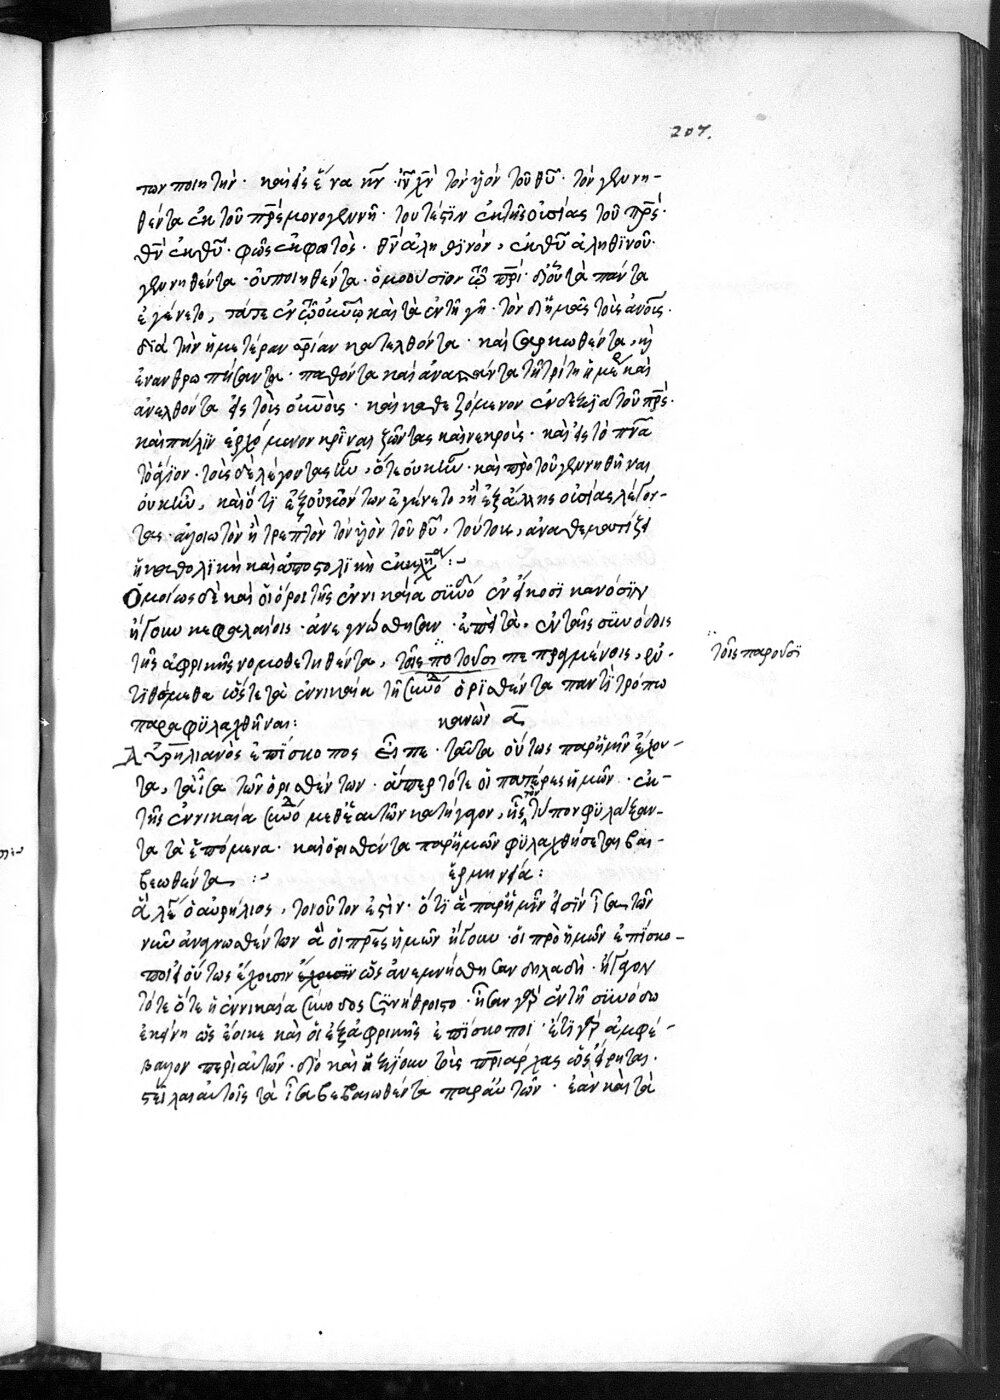 207.
των ποιητήν· καὶ εἰς ἕνα κν ιν χν τὸν υἱὸν τοῦ θυ· τὸν γεννη-
θέντα ἐκ τοῦ πρς μονογενῆ· τουτέστιν ἐκ τῆς οὐσίας τοῦ πρς·
θν ἐκ θυ· φῶς ἐκ φωτὸς· θν ἀληθινόν, ἐκ θυ ἀληθϊνοῦ·
γεννηθέντα· οὐ ποιηθέντα· ὁμοούσιον τῶ πρι· δι' οὗ τὰ πάντα
ἐγένετο, τάτε ἐν τῶ ουνω καὶ τὰ ἐν τῆ γῆ· τὸν δι' ἡμᾶς τοὺς ανους·
διὰ τὴν ἡμετέραν σριαν κατελθόντα· καὶ σαρκωθέντα, καὶ
ἐνανθρωπήσαντα· παθόντα καὶ ἀναστάντα τῆ τρίτη ἡμέρα καὶ
ἀνελθόντα εἰς τοὺς ουνους· καὶ καθεζόμενον ἐν δεξιᾶ τοῦ πρς·
καὶ πάλϊν ἐρχόμενον κρῖναι ζῶντας καὶ νεκρούς· καὶ εἰς τὸ πνα
τὸ ἅγιον· τοὺς δὲ λέγοντας ἦν, ὅτε οὐκ ἦν· καὶ πρὸ τοῦ γεννηθῆναι
οὐκ ἦν, καὶ ὅτϊ ἐξ οὐκ ὄντων ἐγένετο, ἢ ἐξ ἄλλης οὐσίας λέγον-
τας· ἀλλοιωτὸν ἢ τρεπτὸν τὸν υἱὸν τοῦ θυ, τούτους, ἀναθεματίζει
ἡ καθολϊκὴ καὶ ἀποστολϊκὴ ἐκκλησία:
Ὁμοίως δὲ καὶ οἱ ὅροι τῆς ἐν νικαία συνόδου ἐν εἴκοσι κανόσϊν
ἤγουν κεφαλαίοις· ἀνεγνώσθησαν· ἔπειτα, ἐν ταῖς συνόδοις
τῆς ἀφρικῆς νομοθετηθέντα, τοῖς ποτοῦσι πεπραγμένοις, ἐν-
τϊθέμεθα ὥστε τὰ ἐν νικαία τῆ συνόδω ὁρϊσθέντα παντὶ τρόπω
παραφϋλαχθῆναι:
κανὼν α
Αὐρηλιανὸς ἐπίσκοπος εἶπε· ταῦτα οὕτως παρ' ἡμῖν ἔχον-
τα, τὰ ἶσα τῶν ὁρισθέντων· ἅπερ τότε οἱ πατέρες ἡμῶν· ἐκ
τῆς ἐν νικαία συνόδου μεθ' ἑαυτῶν κατήγαγον, ἧς τὸν τύπον φϋλάξαν-
τα τὰ ἑπόμενα· καὶ ὁρισθέντα παρ' ἡμῶν φϋλαχθήσεται βαι-
βεωθέντα:
ἑρμηνεία:
Ἃ λέγει ὁ αὐρήλιος, τοιοῦτον ἐστὶν· ὅτϊ ἃ παρ' ἡμῖν εἰσὶν ἶσα τῶν
νῦν ἀναγνωσθέντων ἃ οἱ πρες ἡμῶν ἤγουν· οἱ πρὸ ἡμῶν ἐπίσκο-
ποι οὕτως ἔχουσιν ἔχουσϊν ὡς ἀνεμνήσθησαν δηλαδὴ· ἤγαγον
τότε ὅτε ἡ ἐν νικαία σύνοδος συνήθροιστο· ἦσαν γὰρ ἐν τῆ συνόδω
ἐκείνη ὡς ἔοικε καὶ οἱ ἐξ ἀφρικῆς ἐπίσκοποι· ἔτϊ γὰρ ἀμφέ-
βαλλον περὶ αὐτῶν· διὸ καὶ ἠξίουν τοὺς πριάρχας ὡς εἴρηται·
στεῖλαι αὐτοῖς τὰ ἶσα βεβαιωθέντα παρ' αὐτῶν· ἐὰν καὶ τὰ
τοῖς παροῦσϊ